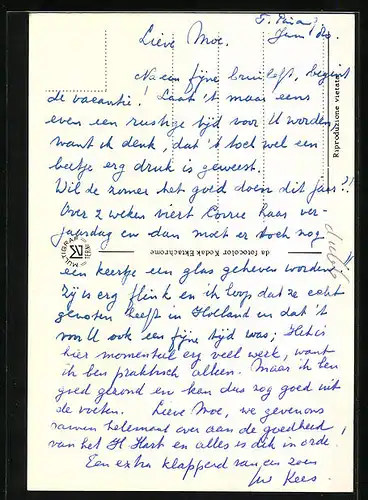 Juni '80
Lieve Moe.
Na een fijne bruiloft, begint
de vacantie! Laat 't maar eens
even een rustige tijd voor U worden,
want ik denk, dat 't toch wel een
beetje erg druk is geweest.
Wil de zomer het goed doen dit jaar?!
Over 2 weken viert Corrie haar ver-
jaardag en dan moet er toch nog
da fotocolor Kodak Ektachrome
een keertje een glas geheven worden
Zij is erg flink en ik hoop dat ze echt
genoten heeft in Holland en dat 't
voor U ook een fijne tijd was; Het is
hier momenteel erg veel werk, want
ik ben praktisch alleen. Maar ik ben
goed gezond en kan dus nog goed uit
de voeten. Lieve Moe, we geven ons
samen helemaal over aan de goedheid
van het H Hart en alles is dik in orde.
Een extra klapperd van een zoen
uw Kees.
Riproduzione vietata